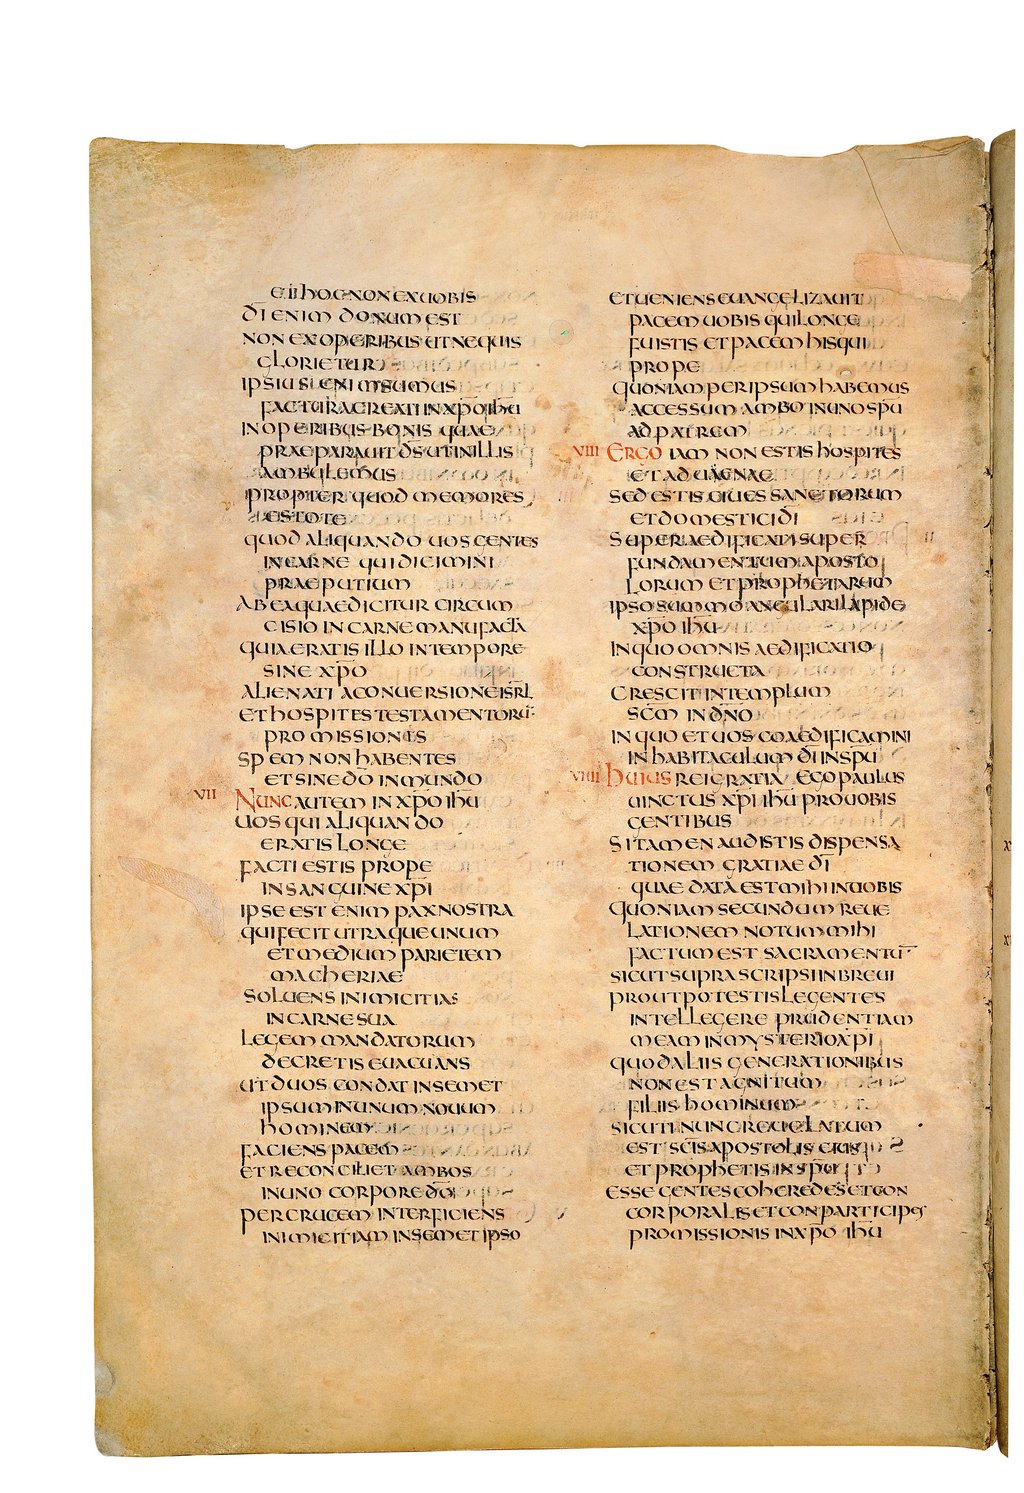 ET HOC NON EX UOBIS
D̄I ENIM DONUM EST
NON EX OPERIBUS UT NEQUIS
GLORIETUR
IPSIUS ENIM SUMUS
FACTURA CREATI IN XP̄O IHŪ
IN OPERIBUS BONIS QUAE
PRAEPARAUIT D̄S UT IN ILLIS
AMBULEMUS
PROPTER QUOD MEMORES
ESTOTE
QUOD ALIQUANDO UOS GENTES
IN CARNE QUI DICIMINI
PRAEPUTIUM
AB EA QUAE DICITUR CIRCUM
CISIO IN CARNE MANUFACTA
QUIA ERATIS ILLO IN TEMPORE
SINE XP̄O
ALIENATI A CONUERSIONE ISRL̄
ET HOSPITES TESTAMENTORŪ
PROMISSIONIS
SPEM NON HABENTES
ET SINE D̄O IN MUNDO
VII NUNC AUTEM IN XP̄O IHŪ
UOS QUI ALIQUANDO
ERATIS LONGE
FACTI ESTIS PROPE
IN SANGUINE XP̄I
IPSE EST ENIM PAX NOSTRA
QUI FECIT UTRAQUE UNUM
ET MEDIUM PARIETEM
MACHERIAE
SOLUENS INIMICITIAS
IN CARNE SUA
LEGEM MANDATORUM
DECRETIS EUACUANS
UT DUOS CONDAT IN SEMET
IPSUM IN UNUM NOUUM
HOMINEM
FACIENS PACEM
ET RECONCILIET AMBOS
IN UNO CORPORE D̄O
PER CRUCEM INTERFICIENS
INIMICITIAM IN SEMET IPSO
ET UENIENS EUANGELIZAUIT
PACEM UOBIS QUI LONGE
FUISTIS ET PACEM HIS QUI
PROPE
QUONIAM PER IPSUM HABEMUS
ACCESSUM AMBO IN UNO SPŪ
AD PATREM
VIII ERGO IAM NON ESTIS HOSPITES
ET ADUAENAE
SED ESTIS CIUES SANCTORUM
ET DOMESTICI D̄I
SUPERAEDIFICATI SUPER
FUNDAMENTUM APOSTO
LORUM ET PROPHETARUM
IPSO SUMMO ANGULARI LAPIDE
XP̄O IHŪ
IN QUO OMNIS AEDIFICATIO
CONSTRUCTA
CRESCIT IN TEMPLUM
SC̄M IN DN̄O
IN QUO ET UOS COAEDIFICAMINI
IN HABITACULUM D̄I IN SPŪ
VIIII HUIUS REI GRATIA EGO PAULUS
UINCTUS XP̄I IHŪ PRO UOBIS
GENTIBUS
SI TAMEN AUDISTIS DISPENSA
TIONEM GRATIAE D̄I
QUAE DATA EST MIHI IN UOBIS
QUONIAM SECUNDUM REUE
LATIONEM NOTUM MIHI
FACTUM EST SACRAMENTŪ
SICUT SUPRA SCRIPSI IN BREUI
PROUT POTESTIS LEGENTES
INTELLEGERE PRUDENTIAM
MEAM IN MYSTERIO XP̄I
QUOD ALIIS GENERATIONIBUS
NON EST AGNITUM
FILIIS HOMINUM
SICUTI NUNC REUELATUM
EST SC̄IS APOSTOLIS EIUS
ET PROPHETIS IN SPŪ
ESSE GENTES COHEREDES ET CON
CORPORALIS ET CONPARTICIPES
PROMISSIONIS IN XP̄O IHŪ